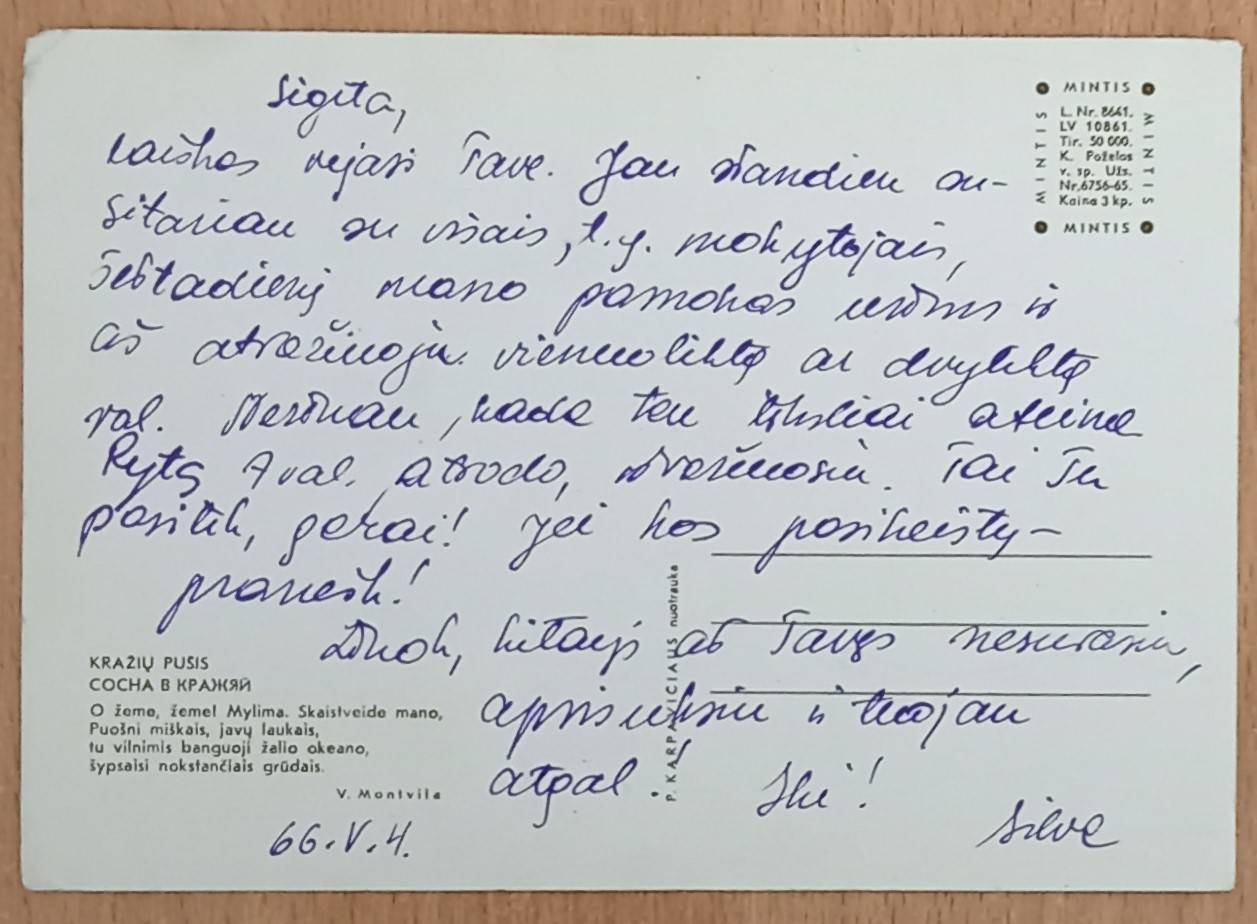 Sigita,
laiškas vejasi Tave. Jau šiandien su-
sitariau su visais, t.y. mokytojais,
šeštadienį mano pamokas užims ir
aš atvažiuoju vienuoliktą ar dvyliktą
val. Nežinau, kada ten tiksliai ateina
Rytą 7 val. atrodo, išvažiuosiu. Tai Tu
pasitik, gerai! Jei kas pasikeistų-
pranešk!
Žinok, kitaip aš Tavęs nesurasiu,
apsisuksiu ir tuojau
atgal! Iki!
Silve
66.V.4.
KRAŽIŲ PUŠIS
СОСНА В КРАЖЯЙ
O žeme, žeme! Mylima. Skaistveide mano,
Puošni miškais, javų laukais,
tu vilnimis banguoji žalio okeano,
šypsaisi nokstančiais grūdais.
V. Montvila
P. KARPAVIČIAUS nuotrauka
MINTIS
MINTIS
MINTIS
L. Nr. 8641.
LV 10861.
Tir. 50 000.
K. Poželos
v. sp. Užs.
Nr.6756-65.
Kaina 3 kp.
MINTIS